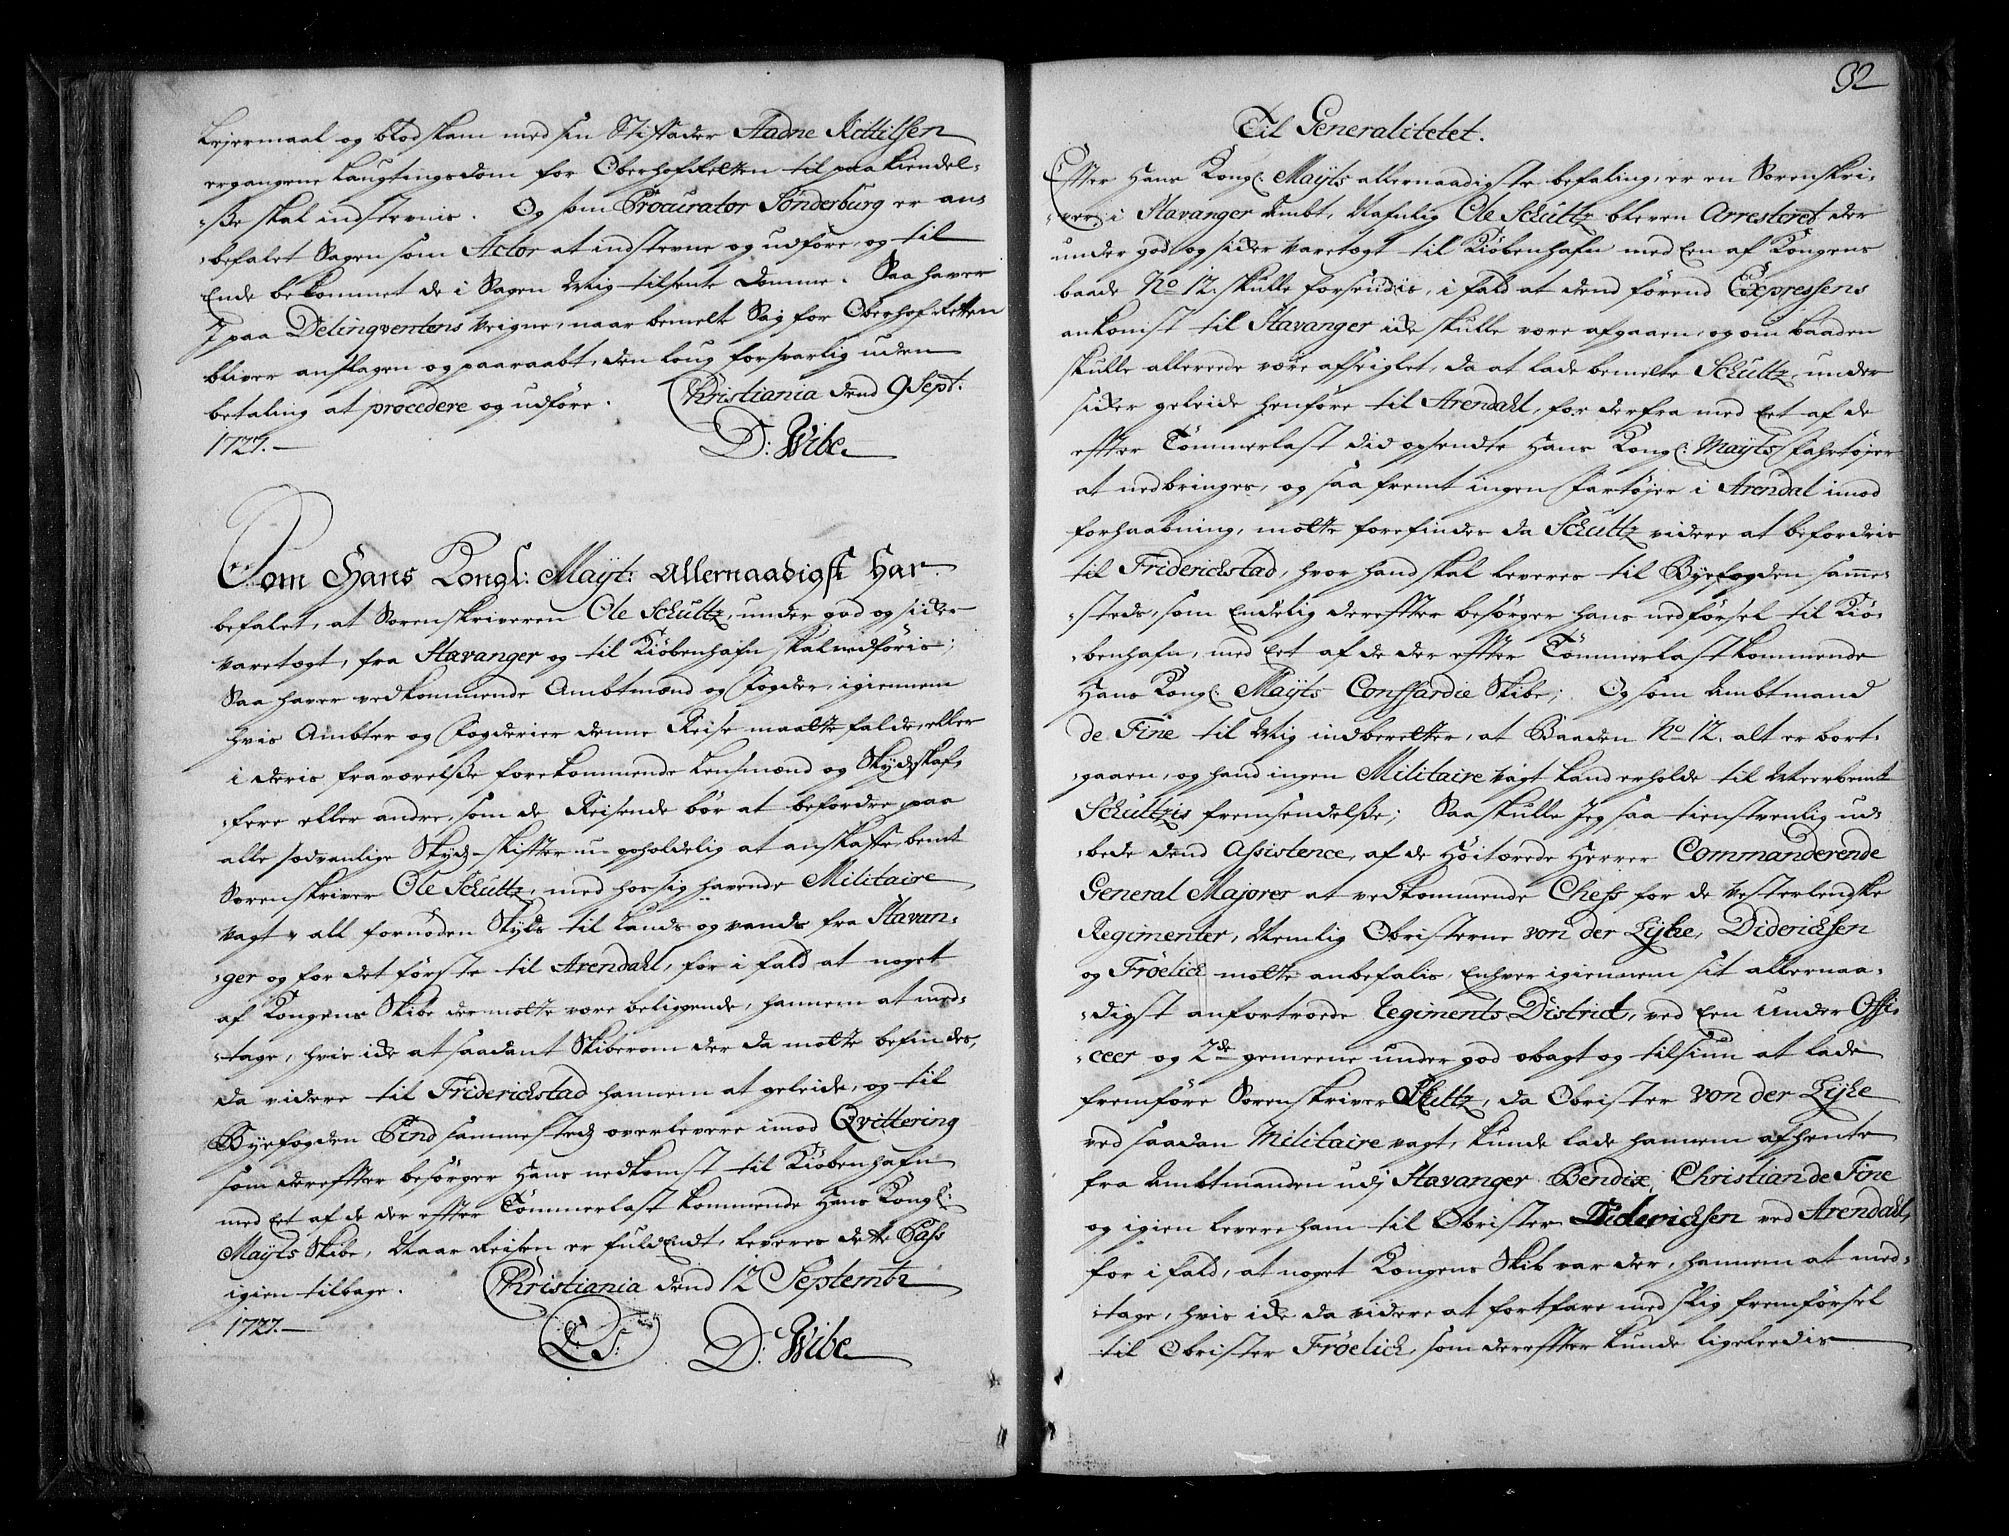 Lejermaal og blodskam med sin Stiffader Aadne Kittilsen
ergangene Laugtingsdom for Oberhofretten til paakiendel-
-ße skal indstevnis. Og som Procurator Sønderburg er an-
-befalet Sagen som Actor at indstevne og udføre, og til
Ende bekommet de i Sagen Mig tilsente Domme. Saa haver
I paa Delinqventens veigne, naar bemelte Sag for Oberhofretten
bliver anslagen og paaraabt, den loug forsvarlig uden
betaling at procedere og udføre. Christiania dend 9 Sept:
1727.
D: Wibe
Som Hans Kongl: Mayt: Allernaadigst Har
befalet, at Sorenskriveren Ole Schultz, under god og sider
varetegt, fra Stavanger og til Kiøbenhafn skal nedføris;
Saa haver vedkommende Ambtmænd og Fogder, igiennem
hvis Ambter og Fogderier denne Reise maatte falde, eller
i deris fraværelse forekommende Lensmænd og Skydsskaf-
-fere eller andre, som de Reisende bør at befordre, paa
alle sædvanlige Skyds-skifter u-opholdelig at anskaffe bemte
Sorenskriver Ole Schultz, med hos sig havende Militaire
vagt, all fornøden Skyds til Lands og vands fra Stavan-
-ger og for det første til Arendahl, for i fald at noget
af Kongens Skibe der motte være beliggende, hannem at med-
-tage, hvis ide at saadant Skiberom der da motte befindes,
da videre til Friderichstad hannem at geleide, og til
Byefogden Pind sammesteds overlevere imod Qvittering
som dereffter besørger Hans nedkomst til Kiøbenhafn
med Eet af de der effter Tømmerlast kommende Hans Kongl:
Mayts Skibe, Naar Reisen er fuldEndt, leveres dette Pass
igien tilbage. Christiania dend 12 Septembr
1727.
L: S: D: Wibe
32
Til Generalitetet.
Effter Hans Kongl: Mayts allernaadigste befaling, er en Sorenskri-
-ver i Stavanger Ambt, Nafnlig Ole Schultz bleven Arresteret, der
under god og sider varetegt til Kiøbenhafn med Een af Kongens
baade No 12. skulle forsendis, i fald at dend førend Expressens
ankomst til Stavanger ide skulle være afgaaen, og om baaden
skulle allereede være afseiglet, da at lade bemelte Schultz, under
sider geleide henføre til Arendahl, for derfra med Eet af de
effter Tømmerlast did opsendte Hans Kongl: Mayts fahrtøjer
at nedbringes, og saa fremt ingen Fartøjer i Arendal imod
forhaabning, motte forefindes da Schultz videre at befordris
til Friderichstad, hvor hand skal leveres til Byefogden samme-
-steds, som Endelig dereffter besørger hans nedførsel til Kiø-
-benhafn, med Eet af de der effter Tømmerlast kommende
Hans Kongl: Mayts Conffardie Skibe; Og som Ambtmand
de Fine til Mig indberetter, at Baaden No 12. alt er bort-
-gaaen, og hand ingen Militaire vagt kand erholde til Meerbemte
Schultzis fremsendelße; Saa skulle Jeg saa tienstvenlig ud-
-bede dend Assistence, af de Høitærede Herrer Commanderende
General Majorer at vedkommende Chefs for de Vesterlendske
Regimenter, Nemlig Obristerne von der Lyhe, Diderichsen
og Frøelich motte anbefalis, Enhver igiennem sit allernaa-
-digst anfortroede Regiments District, ved Een under Offi-
-ceer og 2de gemeene under god obagt og tilsiun at lade
fremføre Sorenskriver Schultz, da Obrister von der Lyhe
ved saadan Militaire vagt, kunde lade hannem afhente
fra Ambtmanden udj Stavanger Bendix Christian de Fine
og igien levere ham til Obrister Diderichsen ved Arendahl,
for i fald, at noget Kongens Skib var der, hannem at med-
-tage, hvis ide da videre at fortfare med slig fremførsel
til Obrister Frøelich, som dereffter kunde ligeleedis